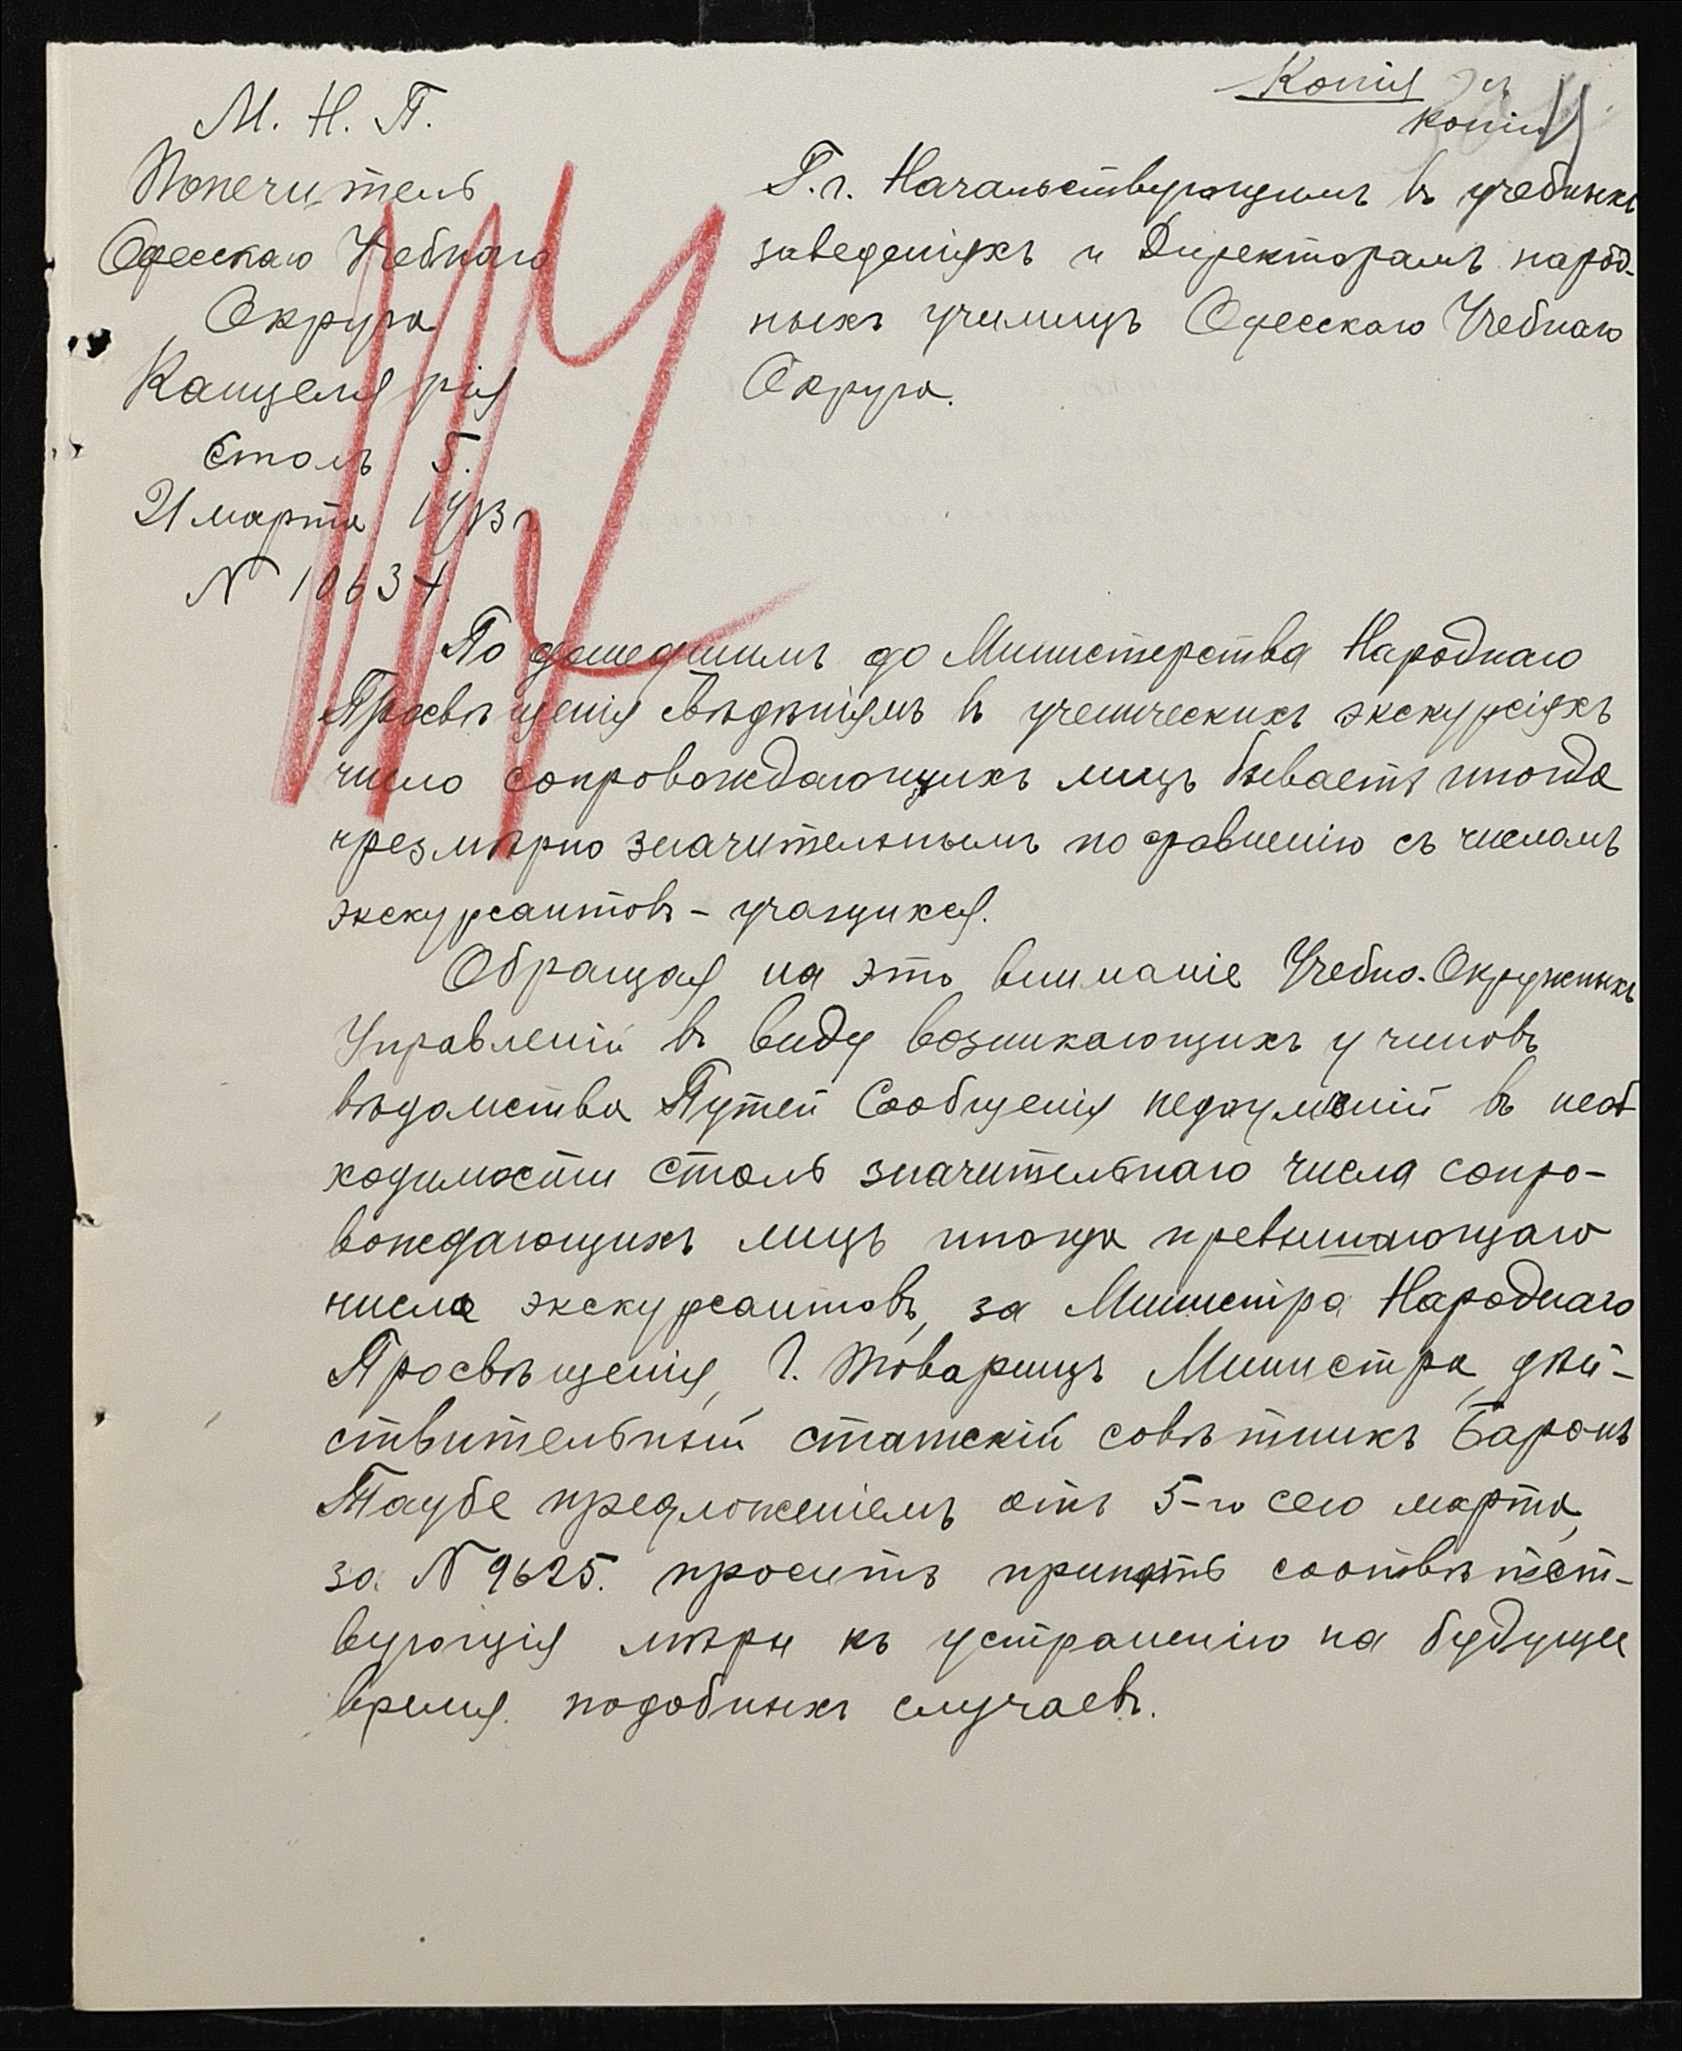 Копія съ
копіи
М. Н. П.
Попечитель
Одесскаго Учебнаго
Округа
Канцелярія
Столъ 5.
21 марта 1913 г.
N 10637.
Г.г. Начальствующимъ въ учебныхъ
заведеніяхъ и Директорамъ народ-
ныхъ училищъ Одесскаго Учебнаго
Округа.
По дошедшимъ до Министерства Народнаго
Просвѣщенія свѣдѣніямъ въ ученическихъ экскурсіяхъ
число сопровождающихъ лицъ бываетъ иногда
чрезмѣрно значительнымъ по сравненію съ числомъ
экскурсантовъ - учащихся.
Обращая на это вниманіе Учебно-Окружныхъ
Управленій въ виду возникающихъ у чиновъ
вѣдомства Путей Сообщенія недоумѣній въ необ
ходимости столь значительнаго числа сопро-
вождающихъ лицъ иногда превышающаго
число экскурсантовъ, за Министра Народнаго
Просвѣщенія, Г. Товарищъ Министра, дѣй-
ствительный статскій совѣтникъ Баронъ
Таубе предложеніемъ отъ 5-го сего марта,
за N 9625. проситъ принять соотвѣтст-
вующія мѣры къ устраненію на будущее
время подобныхъ случаевъ.